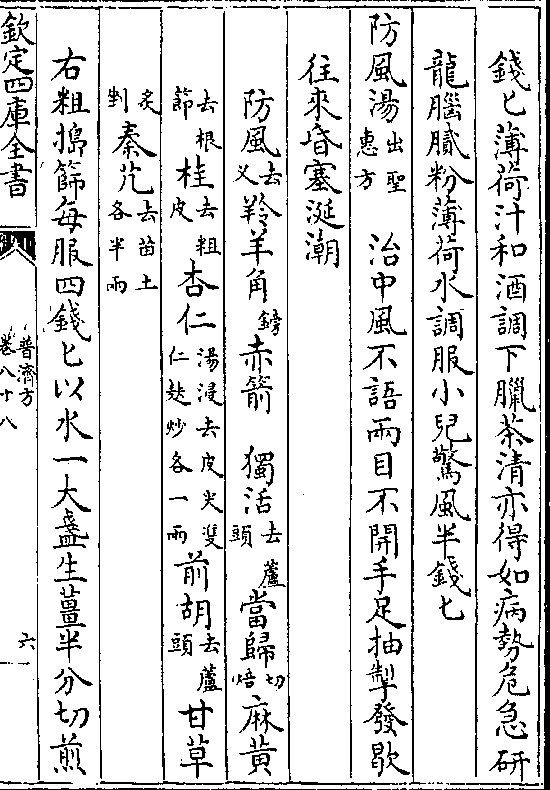 錢匕薄荷汁和酒調下臘茶清亦得如病勢危急研
龍腦膩粉薄荷水調服小兒驚風半錢匕
防風湯出聖惠方 治中風不語兩目不開手足抽掣發歇
往來昏塞涎潮
防風去叉羚羊角鎊赤箭 獨活去蘆頭當歸切焙麻黄
去根節桂去粗皮杏仁湯浸去皮尖雙仁麸炒各一兩前胡去蘆頭甘草
炙剉秦艽去苗土各半兩
右粗搗篩每服四錢匕以水一大盞生薑半分切煎
欽定四庫全書
普濟方
卷八十八
六